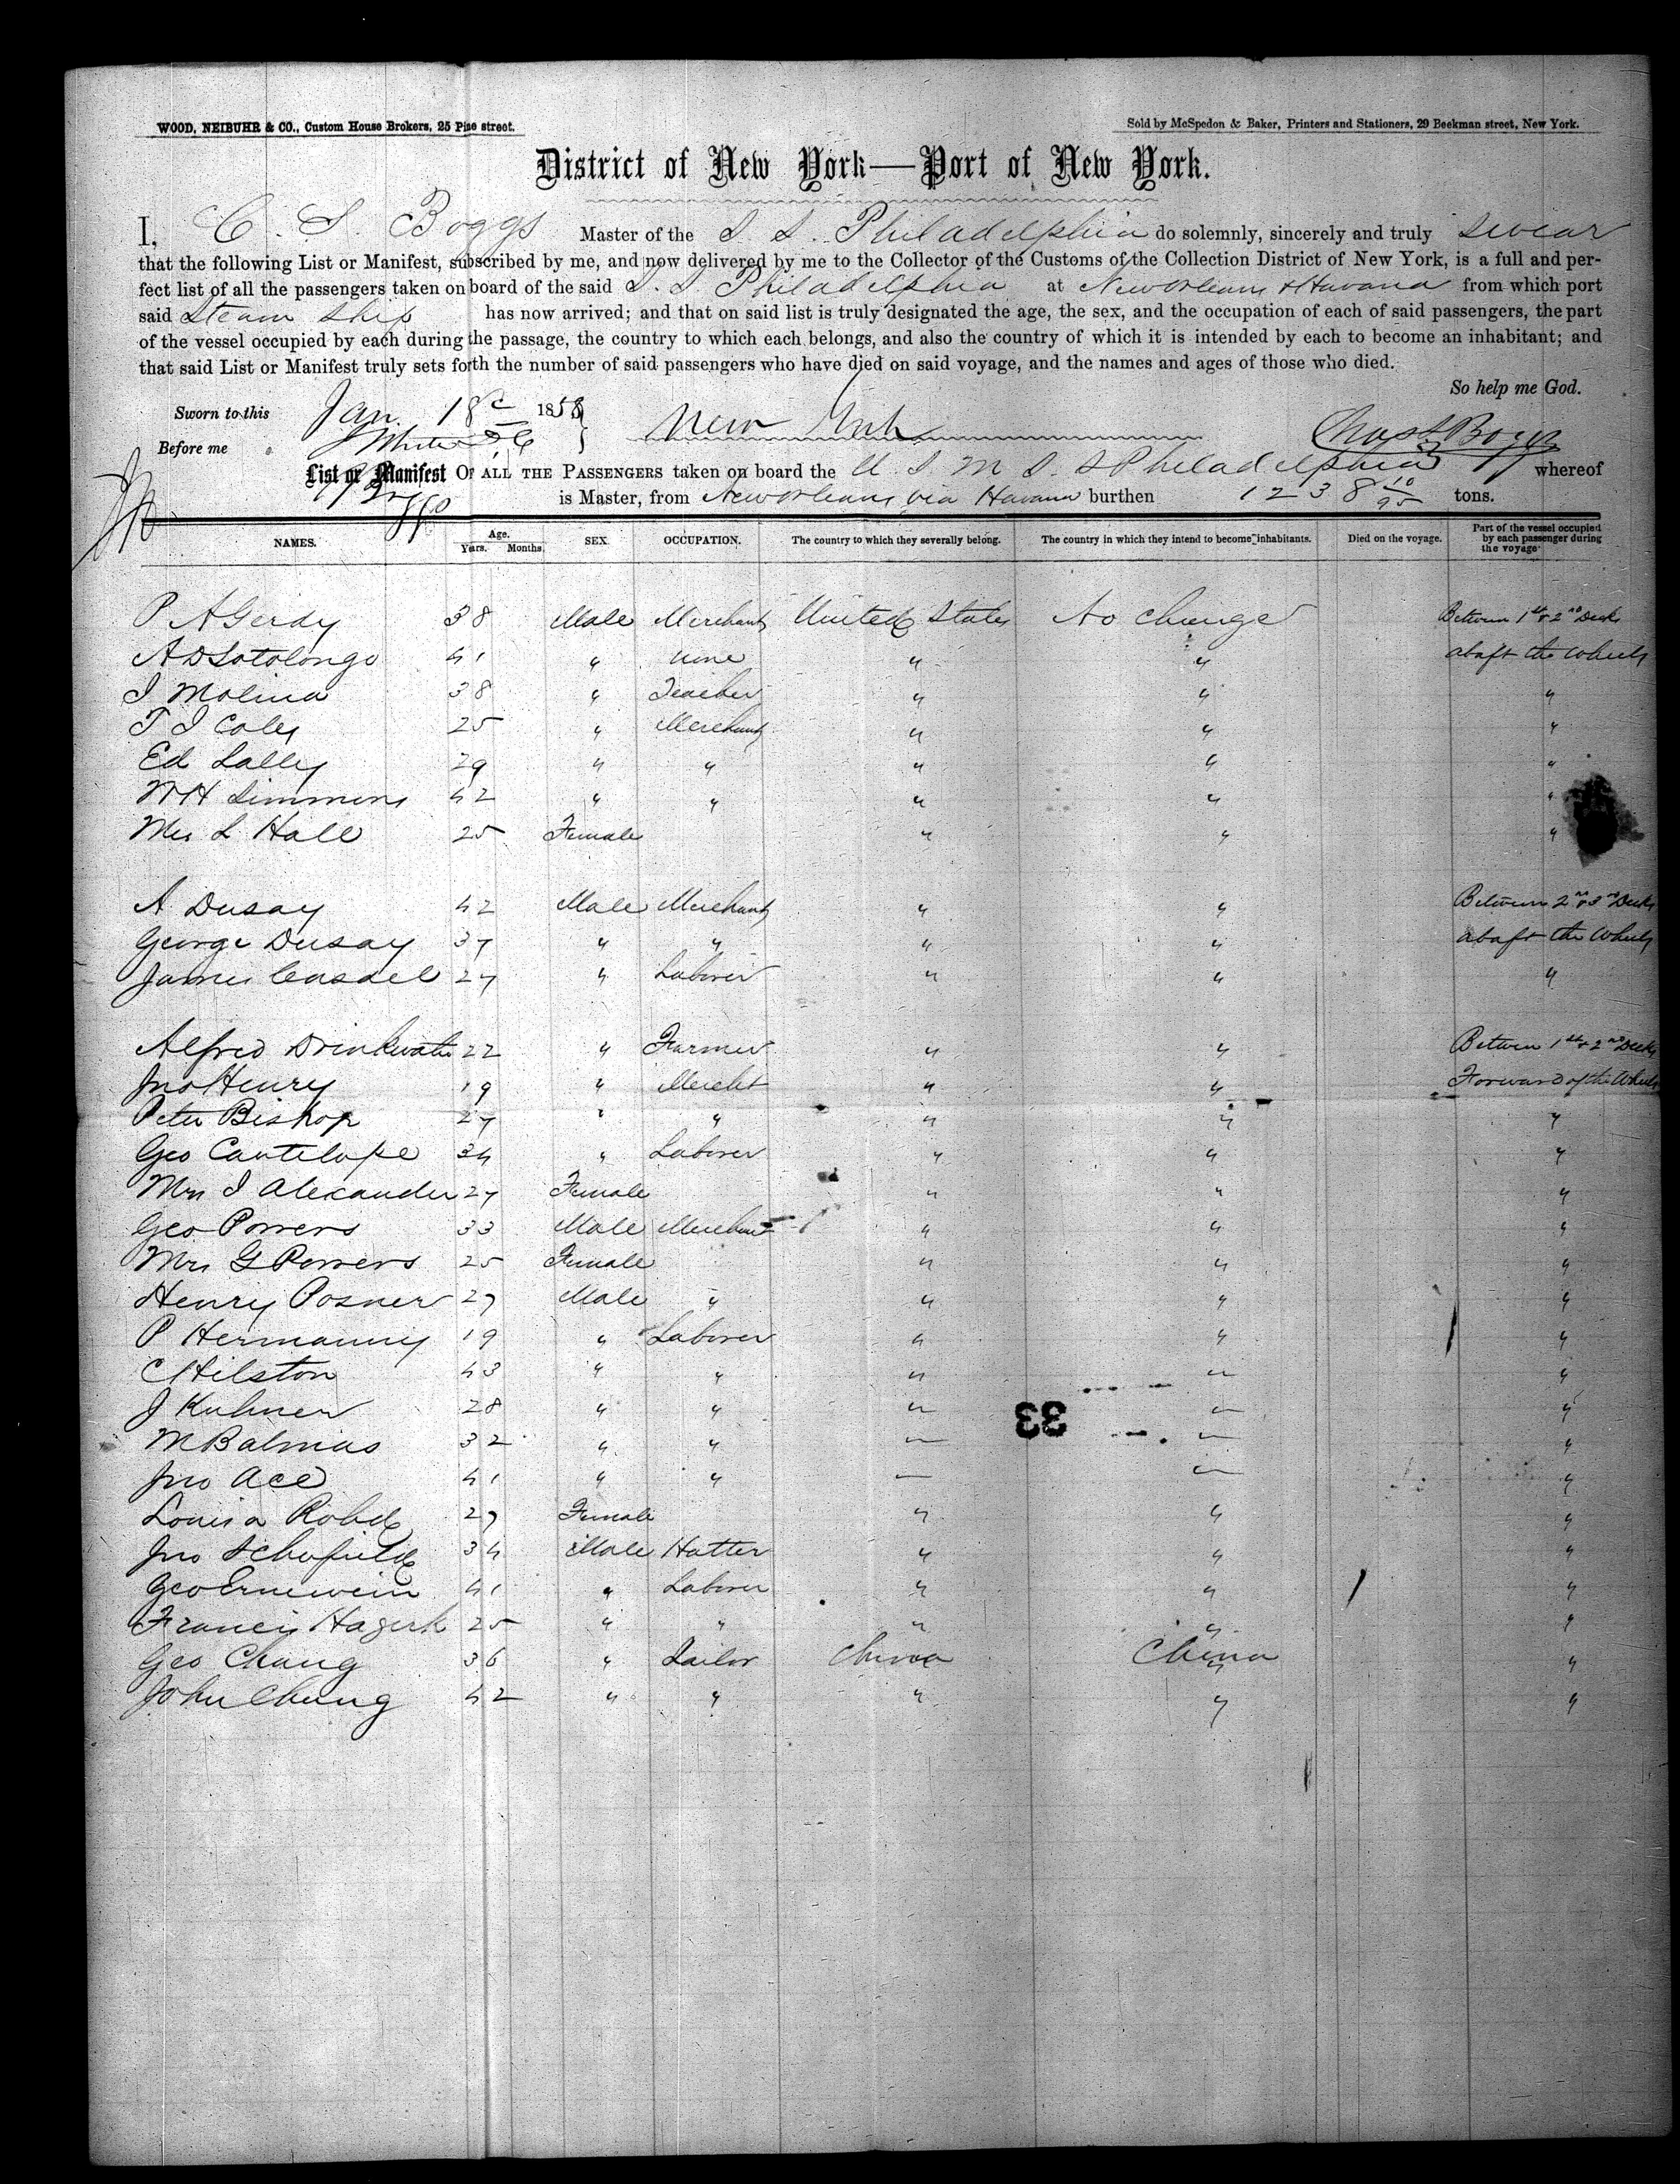 WOOD, NEIBUHR & CO., Custom House Brokers, 25 Pine street.
Sold by McSpedon & Baker, Printers and Stationers, 29 Beekman street, New York.
District of New York—Port of New York.
I, C. S. Boggs Master of the S. S. Philadelphia do solemnly, sincerely and truly swear
that the following List or Manifest, subscribed by me, and now delivered by me to the Collector of the Customs of the Collection District of New York, is a full and per-
fect list of all the passengers taken on board of the said S. S. Philadelphia at New orleans & Havana from which port
said Steam Ship has now arrived; and that on said list is truly designated the age, the sex, and the occupation of each of said passengers, the part
of the vessel occupied by each during the passage, the country to which each belongs, and also the country of which it is intended by each to become an inhabitant; and
that said List or Manifest truly sets forth the number of said passengers who have died on said voyage, and the names and ages of those who died.
So help me God.
Sworn to this Jan. 18 1858 New York
Before me Chas S Boggs
List or Manifest OF ALL THE PASSENGERS taken on board the U S M S. S Philadelphia whereof
is Master, from New orleans via Havana burthen 1238 10/95 tons.
NAMES. Age. Years. Months. SEX. OCCUPATION. The country to which they severally belong. The country in which they intend to become inhabitants. Died on the voyage. Part of the vessel occupied by each passenger during the voyage
P A Gerdy 38 Male Merchant United States No change Between 1st & 2nd Decks
A D Sotolongo 41 " none " " abaft the Wheels
J Molina 38 " Teacher " " "
T J Coles 25 " Merchant " " "
Ed Lally 29 " " " " "
W H Simmons 42 " " " " "
Mrs L Hall 25 Female " " "
A Dusay 42 Male Merchant " " Between 2nd & 3rd Decks
George Dusay 37 " " " " abaft the Wheels
James Casdel 27 " Laborer " " "
Alfred Drinkwater 22 " Farmer " " Between 1st & 2nd Decks
Jno Henry 19 " Mercht " " Forward of the Wheels
Peter Bishop 27 " " " " "
Geo Cantelope 34 " Laborer " " "
Mrs J Alexander 27 Female " " "
Geo Powers 33 Male Merchant " " "
Mrs G Powers 25 Female " " "
Henry Posner 27 Male " " " "
P Hermanny 19 " Laborer " " "
C Hilston 43 " " " " "
J Kuhner 28 " " " " "
M Balmas 32 " " " " "
Jno Ace 41 " " " " "
Louisa Robd 27 Female " " "
Jno Schofield 34 Male Hatter " " "
Geo Ernewein 41 " Laborer " " "
Francis 25 " " " " "
Geo Chang 36 " Sailor China China "
John Chung 42 " " " " "
33